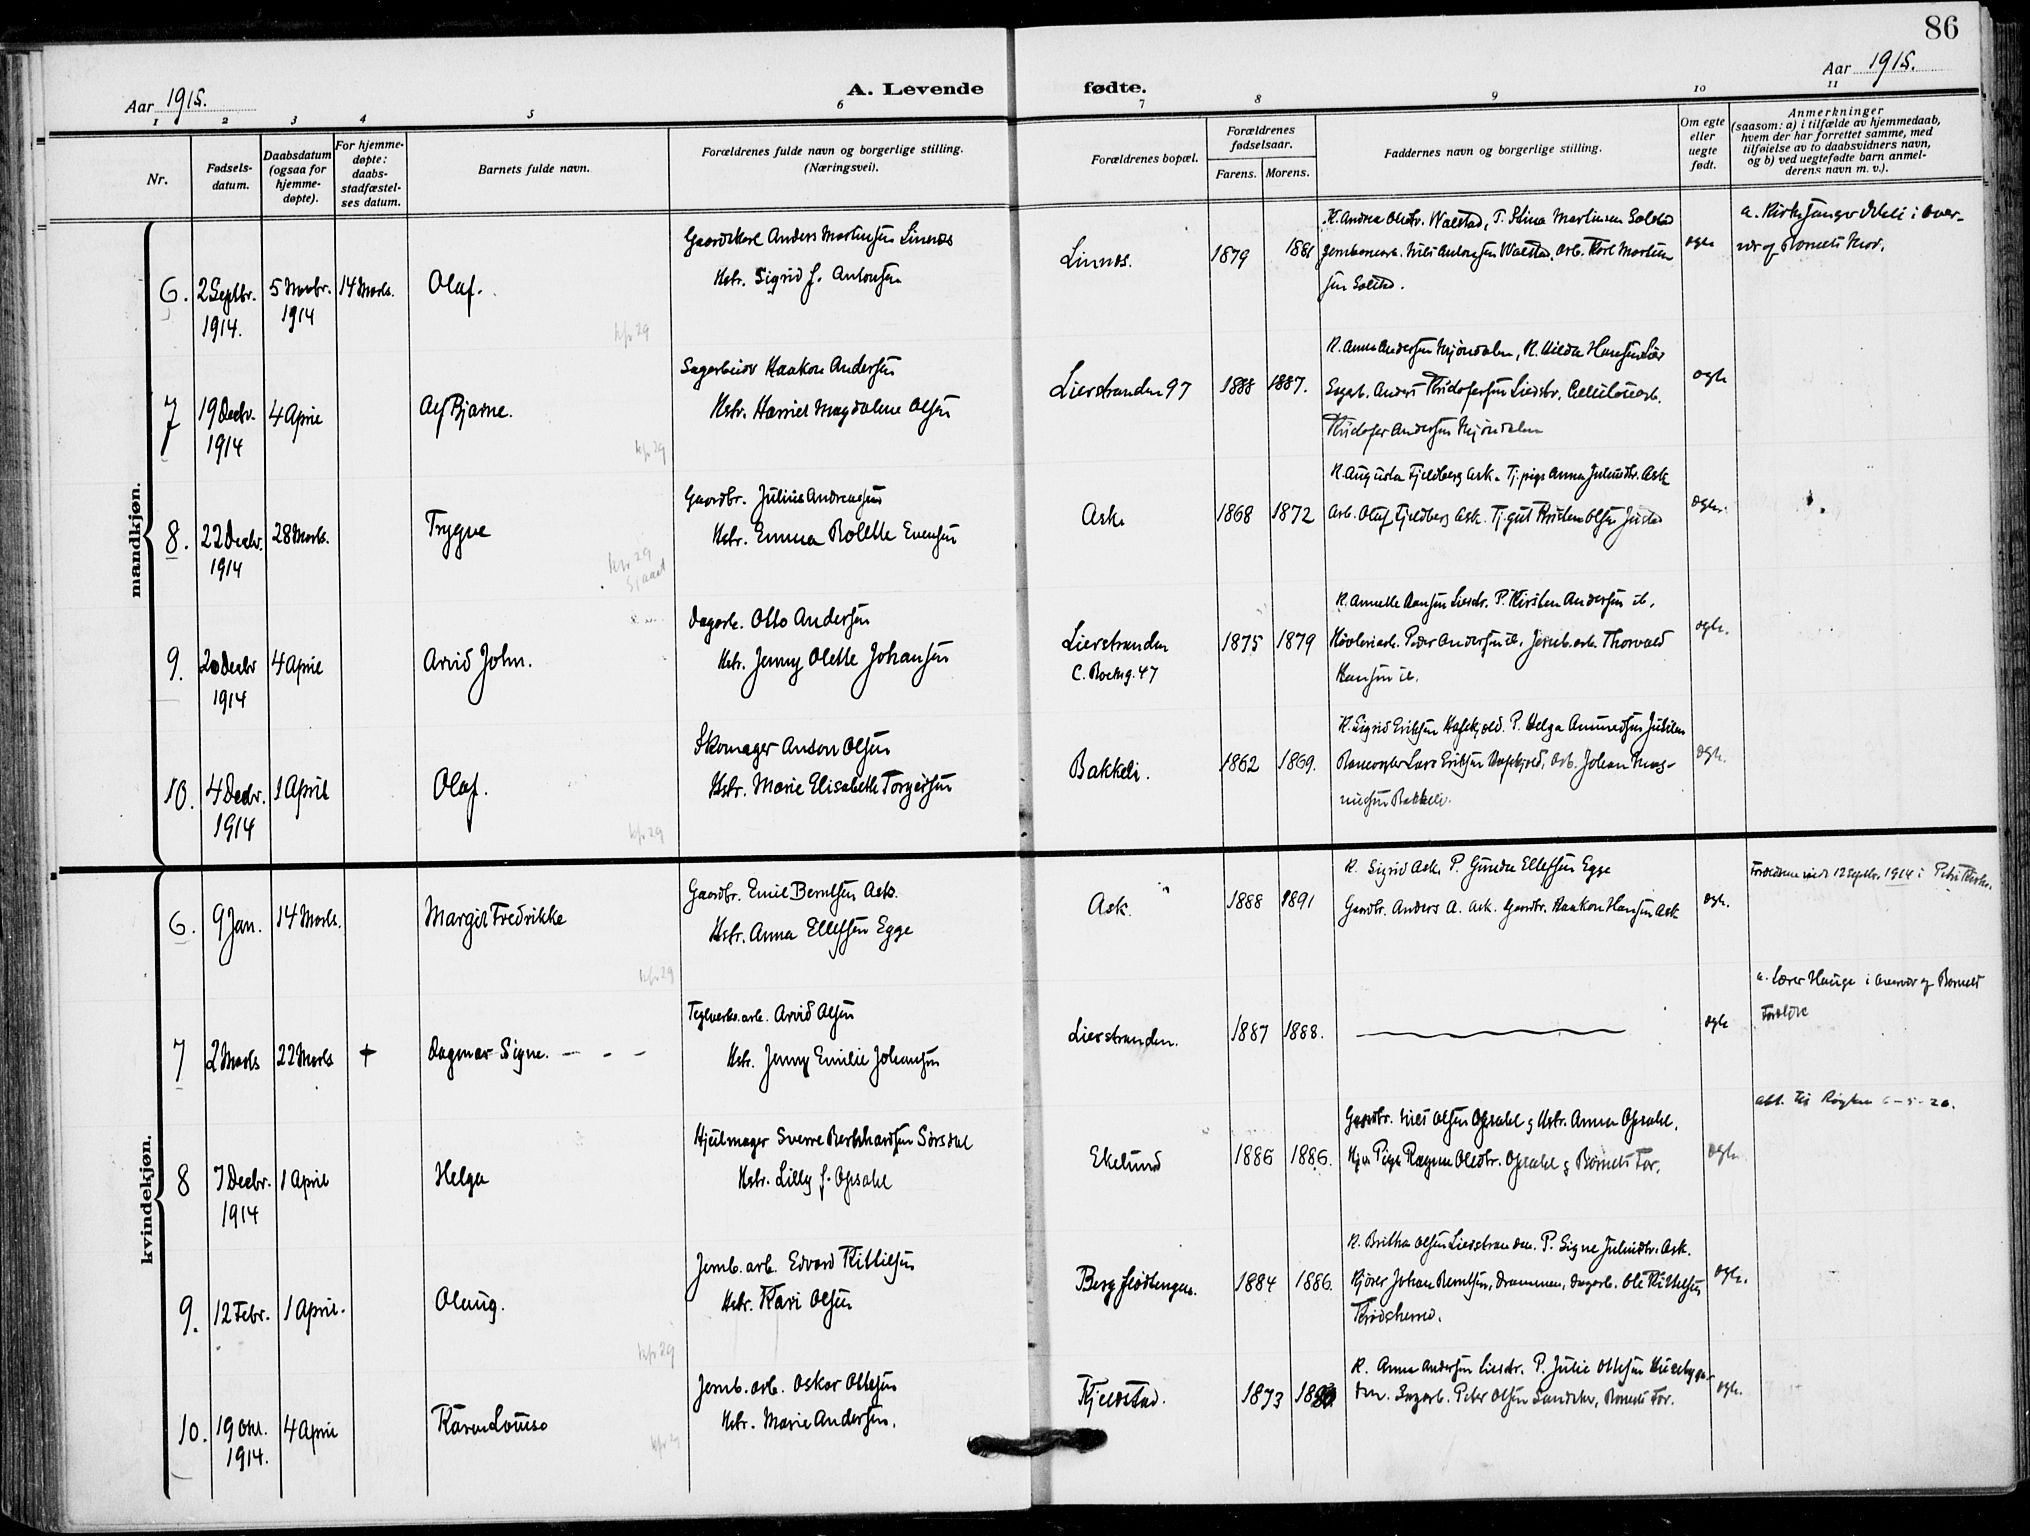 86
Aar 1915.
A. Levende fødte.
Aar 1915.
1 2 3 4 5 6 7 8 9 10 11
Nr.
Fødsels-
datum.
Daabsdatum
(ogsaa for
hjemme-
døpte).
For hjemme-
døpte:
daabs-
stadfæstel-
ses datum.
Barnets fulde navn.
Forældrenes fulde navn og borgerlige stilling.
(Næringsvei).
Forældrenes bopæl.
Forældrenes
fødselsaar.
Farens. Morens.
Faddernes navn og borgerlige stilling.
Om egte
eller
uegte
født.
Anmerkninger
(saasom: a) i tilfælde av hjemmedaab,
hvem der har forrettet samme, med
tilføielse av to daabsvidners navn,
og b) ved uegtefødte barn anmel-
derens navn m. v.).
mandkjøn.
6. 2 Septbr. 1914. 5 Novbr. 1914 14 Marts. Olaf.
kfr 29
Gaardskarl Anders Martinsen Linnes
Hstr. Sigrid f. Antonsen
Linnes. 1879 1881
K. Andrea Olsdtr. Walstad, P. Stina Martinsen Solstad
Jernbanearb. Nils Antonsen Walstad, Arb. Karl Martin
sen Solstad.
egte
7 19 Decbr. 1914 4 April Alf Bjarne.
kfr 29
Sagarbeider Haakon Andersen
Hstr. Harriet Magdalene Olsen
Lierstranden 97 1888 1887.
K. Anna Andersen Mjøndalen, K. Hilda Hansen Lier
Sagarb. Anders Kristofersen Lierstr. Cellulosearb.
Kristofer Andersen Mjøndalen
egte
8. 22 Decbr. 1914 28 Marts. Trygve
kfr 29
Gaardbr. Julius Andreassen
Hstr. Emma Bolette Evensen
Ask 1868 1872
K. Augusta Fjeldberg Ask. Tj.pige Anna Juliusdtr. Ask
Arb. Olaf Fjeldberg Ask. Tj.gut Kristen Olsen
egte.
9. 20 Decbr 1914 4 April Arvid John.
Dagarb. Otto Andersen
Hstr. Jenny Olette Johansen
Lierstranden
C. Backsg. 47
1875 1879
K. Annette Hansen Lierstr. P. Kirsten Andersen ib.
Høvleriarb. Peder Andersen ib. Jernb.arb. Thorvald
Hansen ib.
egte.
10. 4 Decbr. 1914 1 April Olaf.
kfr 29
Skomager Anton Olsen
Hstr. Marie Elisabeth Torgersen
Bakkeli. 1862 1869.
K. Sigrid Eriksen Hafskjold. P. Helga Amundsen
Banevogter Lars Eriksen Hafskjold, Arb. Johan Mag-
nussen Bakkeli.
egte.
kvindekjøn.
6. 9 Jan. 14 Marts. Margit Fredrikke
kfr 29
Gaardbr. Emil Berntsen Ask.
Hstr. Anna Ellefsen Egge
Ask. 1888 1891
K. Sigrid Ask, P. Gunda Ellefsen Egge
Gaardbr. Anders A. Ask. Gaardbr. Haakon Hansen Ask
egte.
Forældrene viede 12 Septbr. 1914 i
7 2 Marts 22 Marts + Dagmar Signe. - - -
Teglverks.arb. Arvid Olsen
Hstr. Jenny Emilie Johansen
Lierstranden. 1887 1888.
egte
a. Lærer Hauge i Overvær af Barnets
Forældre
8 7 Decbr. 1914 1 April Helga
Hjulmager Sverre Bernhardsen Sørsdal
Hstr. Lilly f. Opsahl
Ekelund 1886 1886.
Gaardbr. Nils Olsen Opsahl & Hstr. Anna Opsahl,
Pige Ragna Olsdtr. Opsahl & Barnets Far.
egte.
att. til Røyken 6-5-20.
9. 12 Febr. 1 April. Olaug.
kfr 29
Jernb.arb. Edvard Kittilsen
Hstr. Kari Olsen
Berg 1884 1886.
K. Britha Olsen Lierstranden. P. Signe Juliusdtr. Ask.
Kjører Johan Berntsen, Drammen, Dagarb. Ole Kittelsen
Krødsherred.
egte.
10. 19 Okt. 1914. 4 April Karen Louise
kfr 29
Jernb.arb. Oskar Ottesen
Hstr. Marie Andersen.
Kjeldstad. 1873
K. Anna Andersen Lierstr. P. Julie Ottesen
Sagarb. Peter Olsen Sandaker, Barnets Far.
egte.